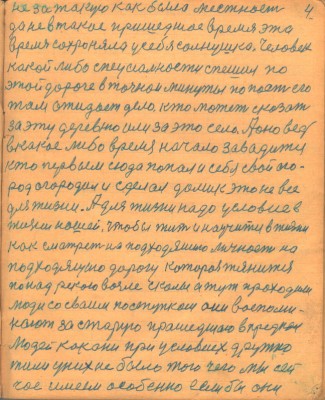 4
не за такую как была местност
да не в такое пришедшое время эта
время сохроняла у себя солнушка. Человек
какой либо специальности спешил по
этой дороге в точной минуты попоат его
там ожидает дело, кто может сказат
за эту деревню или за это село. А оно вед
в какое либо время начало заводится
кто первым сюда попал и себя свой ого-
род огородил и сделал домик это не все
для жизни. А для жизни надо условие в
жизни нашей, чтобы жит и научити в жизни
как сматрет на подходящию личност на
подходящую дорогу которая тянится
понад рекою возле скалы и тут проходили
люди со своим поступком они воспоми-
нают за старую прашедшаю впредки
людей как они при условиях дружно
жили у них не было того чего мы сей
час имеем особенно если бы они